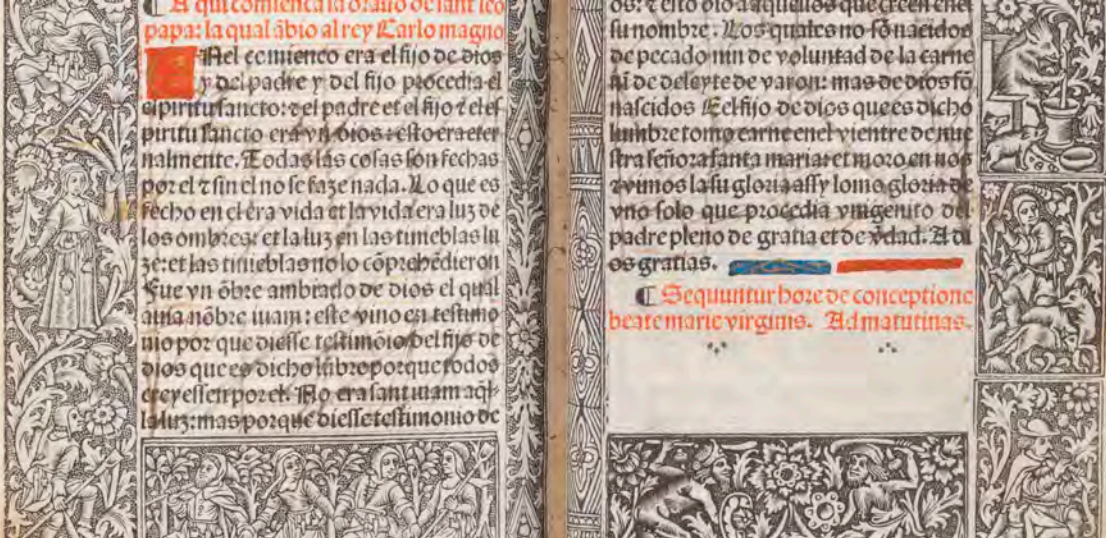 ¶ A qui comiença la oraciõ de sant leo
papa: la qual ãbio al rey Carlo magno
Nel comienco era el fijo de dios
y del padre y del fijo procedia el
espiritu sancto: ⁊ el padre et el fijo ⁊ el es
piritu sancto era vn dios: esto era eter
nalmente. Todas las cosas son fechas
por el ⁊ sin el no se faze nada. Lo que es
fecho en el era vida et la vida era luz de
los ombres: et la luz en las tinieblas lu
ze: et las tinieblas no lo cõprehẽdieron
Fue vn õbre ambiado de dios el qual
auia nõbre iuam: este vino en testimo
nio por que diesse testimõio del fijo de
dios que es dicho lũbre porque todos
creyessen por el. No era sant iuam aql̃-
la luz: mas porque diesse testimonio de
os: ⁊ esto dio a aquellos que creen enel
su nombre: Los quales no sõ nacidos
de pecado nin de voluntad de la carne
ni de deleyte de varon: mas de dios sõ
nascidos E el fijo de dios que es dicho
lumbre tomo carne enel vientre de nue
stra señora santa maria: et moro en nos
⁊ vimos la su gloria assy como gloria de
vno solo que procedia vnigenito del
padre pleno de gratia et de ṽdad. A di
os gratias.
¶ Sequuntur hore de conceptione
beate marie virginis. Ad matutinas.